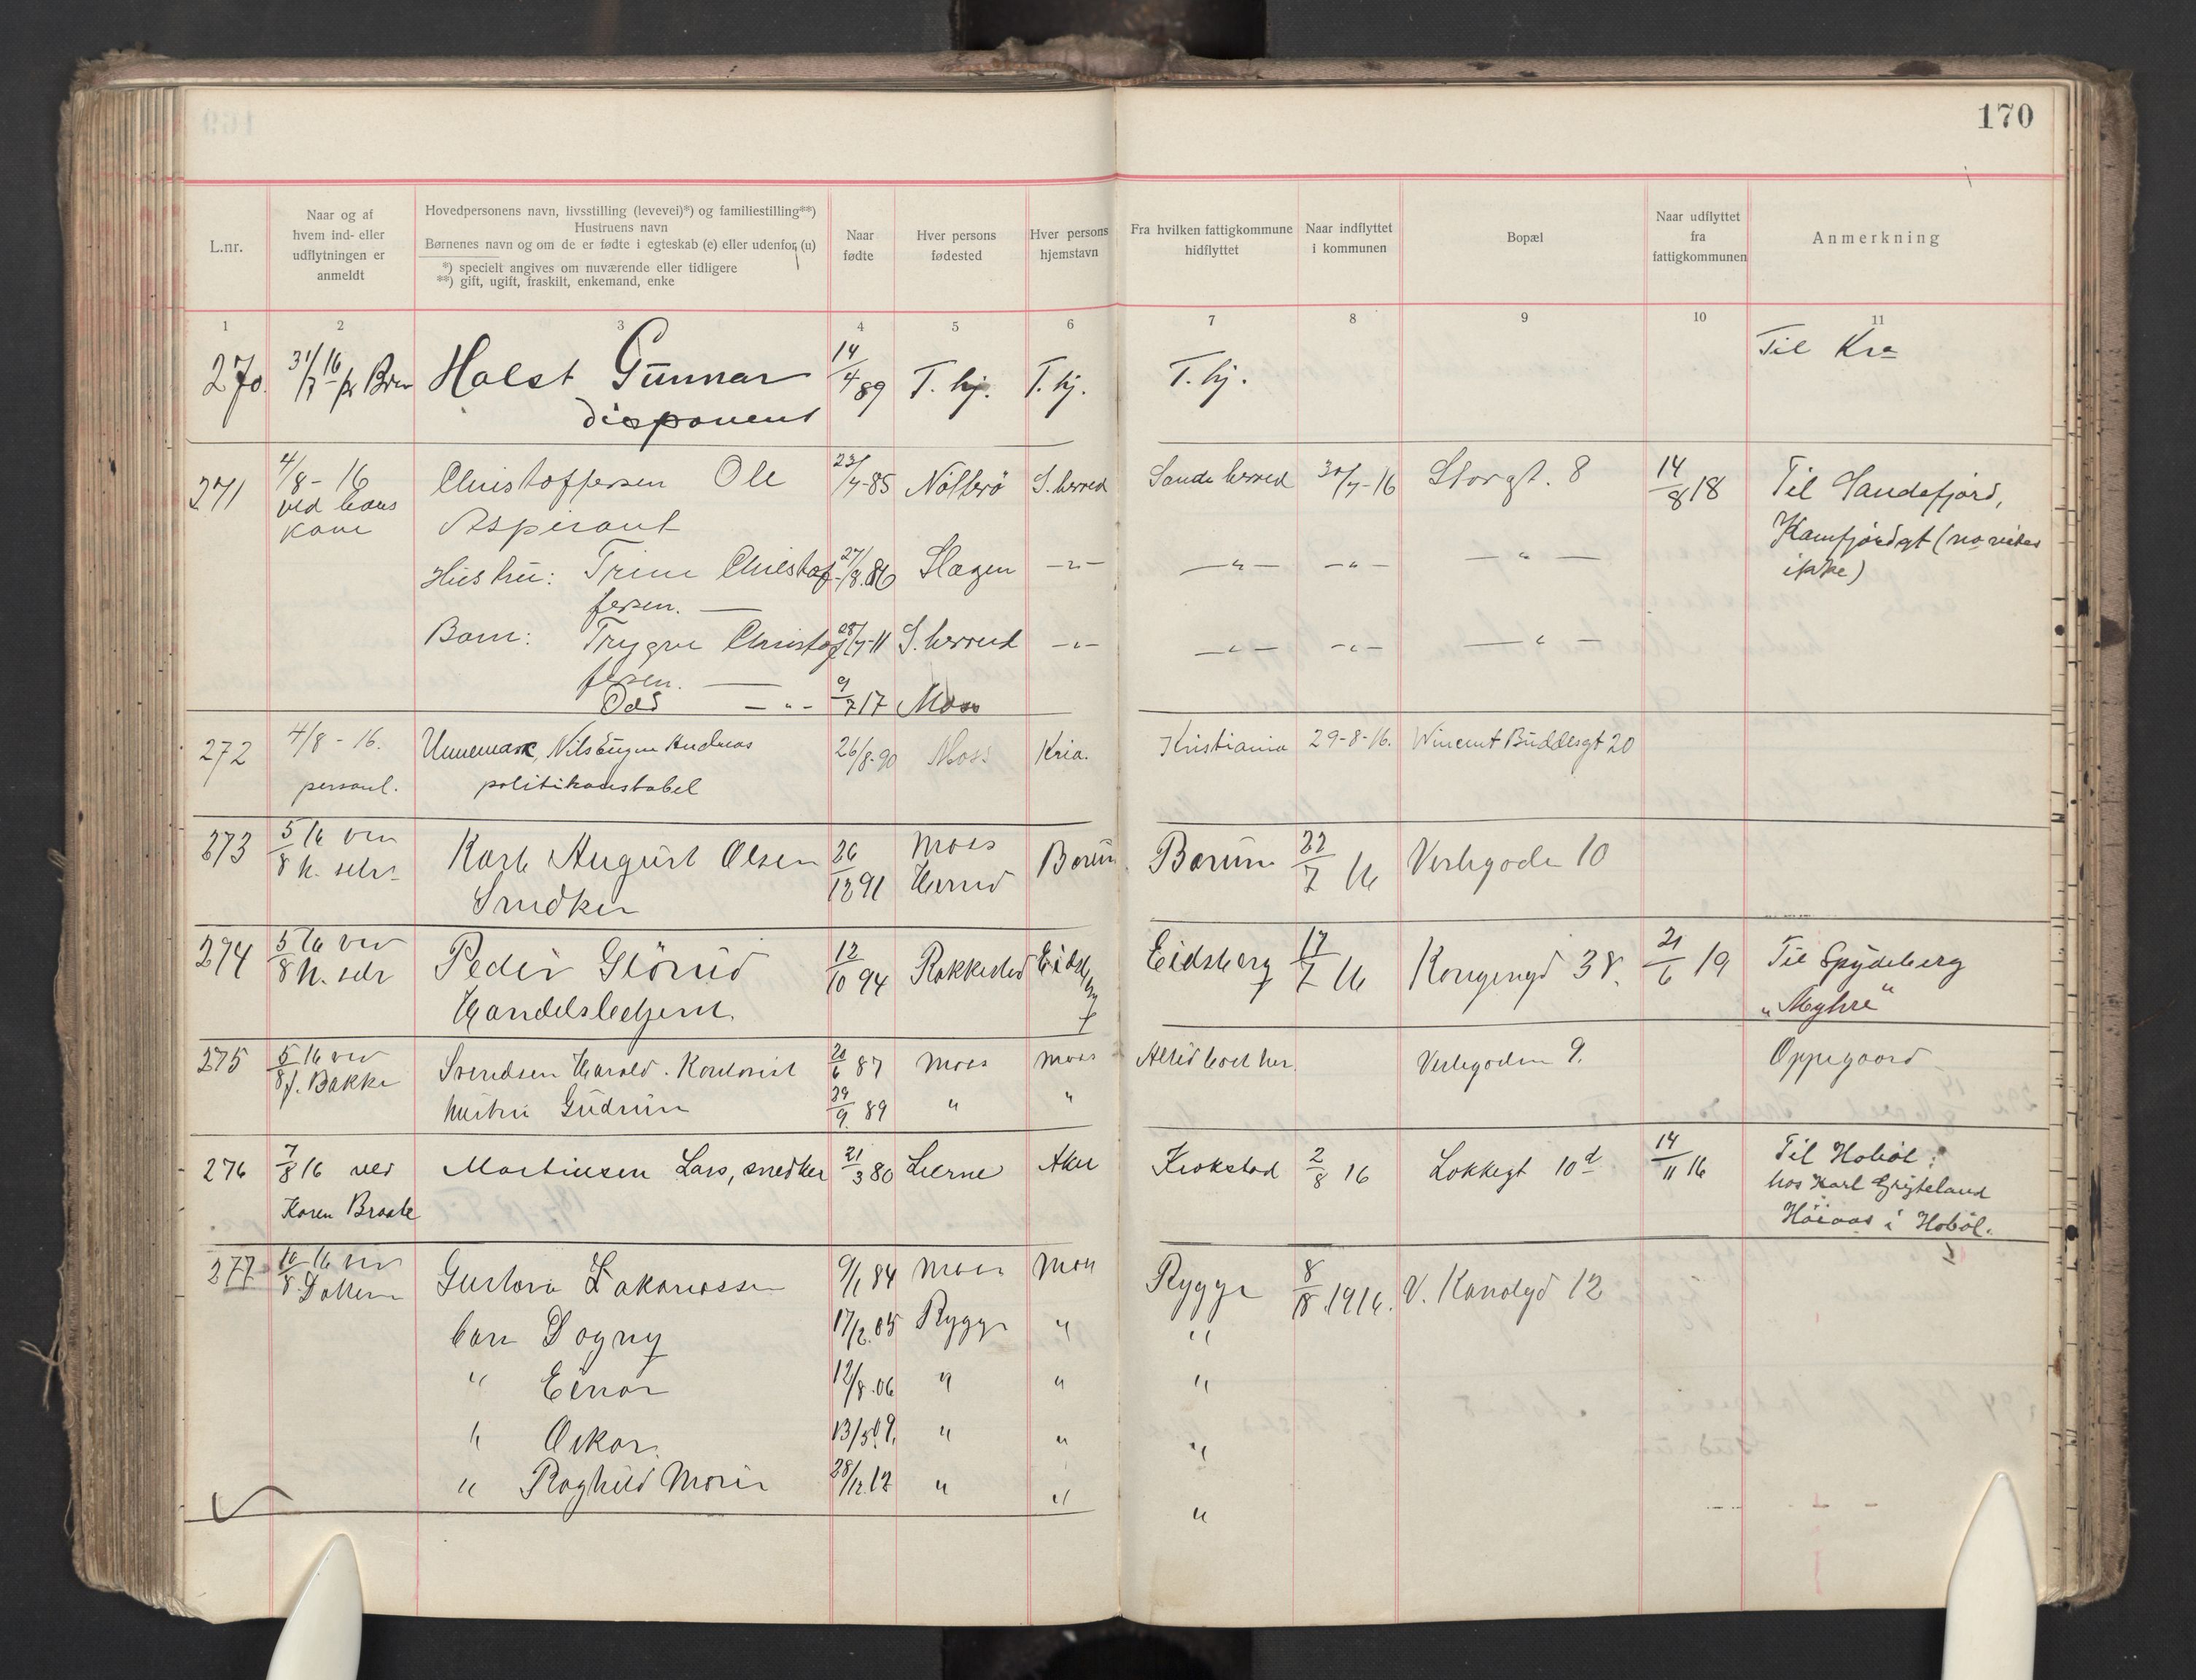 170
L.nr.
Naar og af
hvem ind- eller
udflytningen er
anmeldt
Hovedpersonens navn, livsstilling (levevei)*) og familiestilling**)
Hustruens navn
Børnenes navn og om de er fødte i egteskab (e) eller udenfor (u)
*) specielt angives om nuværende eller tidligere
**) gift, ugift, fraskilt, enkemand, enke
Naar
fødte
Hver persons
fødested
Hver persons
hjemstavn
Fra hvilken fattigkommune
hidflyttet
Naar indflyttet
i kommunen
Bopæl
Naar udflyttet
fra
fattigkommunen
Anmerkning
1 2 3 4 5 6 7 8 9 10 11
270. 31/7 16 Holst Gunnar 14/4 89 T. hj. T. hj. T. hj. Til Kra
disponent
271 4/8 - 16 Christoffersen Ole 23/7-85 Nötterö S. herred Sande herred 30/7-16 Storgt. 8 14/8 18 Til Sandefjord,
ved hans
kone Aspirant Kamfjordgt (no vites
ikke)
Hustru: Trine Christof- 27/8.86 Slagen —„— —„— —„— —„—
fersen. —
Barn: Trygve Christof 28/7-11 S. herred —„— —„— —„— —„—
fersen. —
Odd —„— 9/7 17 Moss
272 4/8 - 16. Unnemark, Nils Eugen Andreas 26/8-90 Moss Kria. Kristiania 29-8-16. Wincent Buddesgt 20
personl. politikonstabel
273 5/8 16 ved Karl August Olsen 26/12 91 Moss Bærum Bærum 22/7 16 Verlegaden 10
Herred
Snedker
274 5/8 16 ved Peder Glörud 12/10 94 Rakkestad Eidsberg Eidsberg 17/7 16 Kongengd 38. 21/6 19 Til Spydeberg
Handelsbetjent „Myhre“
275 5/8 16 ved Svendsen Harald. Kontorist 20/6 87 Moss Moss Altid boet her. Verlegaden 9. Oppegaard
J. Bakke hustru Gudrun 29/9. 89 " "
276 7/8 16 ved Martinsen Lars, snedker 21/3 80 Lierne Aker Krokstad 2/8 16 Løkkegt 10d 14/11 16 Til Hobøl:
Karen Braate hos Karl
Höiaas i Hobøl.
277 10/8 16 ved Gustava Zakariassen 9/1 84 Moss Moss Rygge 8/8 1916. V. Kanalgd 12
barn Dagny 17/2.05 Rygge " "
" Einar 12/8.06 " " "
" Oskar 13/5 09. " " "
" Raghild Marie 28/12 12 " " "